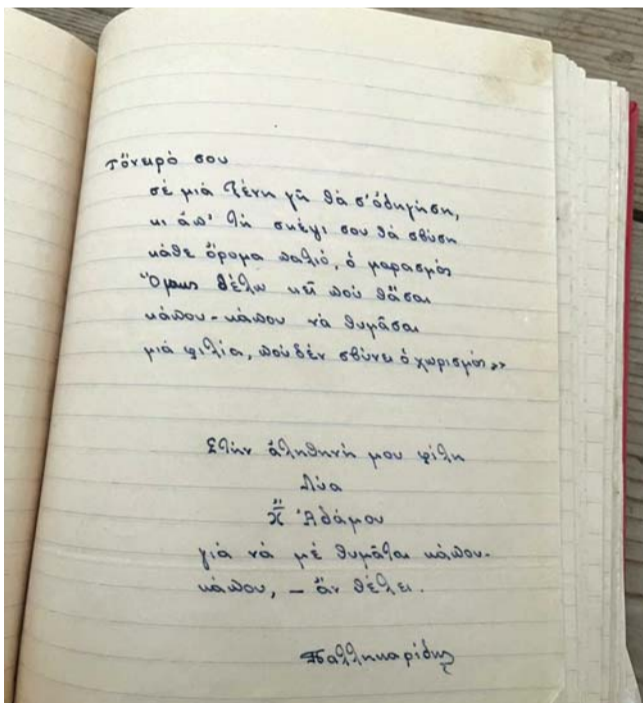 τὄνειρό σου
σέ μιά ξένη γῆ θά σ' ὁδηγήση,
κι ἀπ' τή σκέψι σου θά σβύση
κάθε ὅραμα παλιό, ὁ μαρασμός
Ὅμως θέλω κεῖ πού θἆσαι
κάπου-κάπου νά θυμᾶσαι
μιά φιλία, πού δέν σβύνει ὁ χωρισμός»
Στήν ἀληθινή μου φίλη
Λύα
Χ" Ἀδάμου
γιά νά μέ θυμᾶται κάπου-
κάπου, – ἄν θέλει.
Παλληκαρίδης